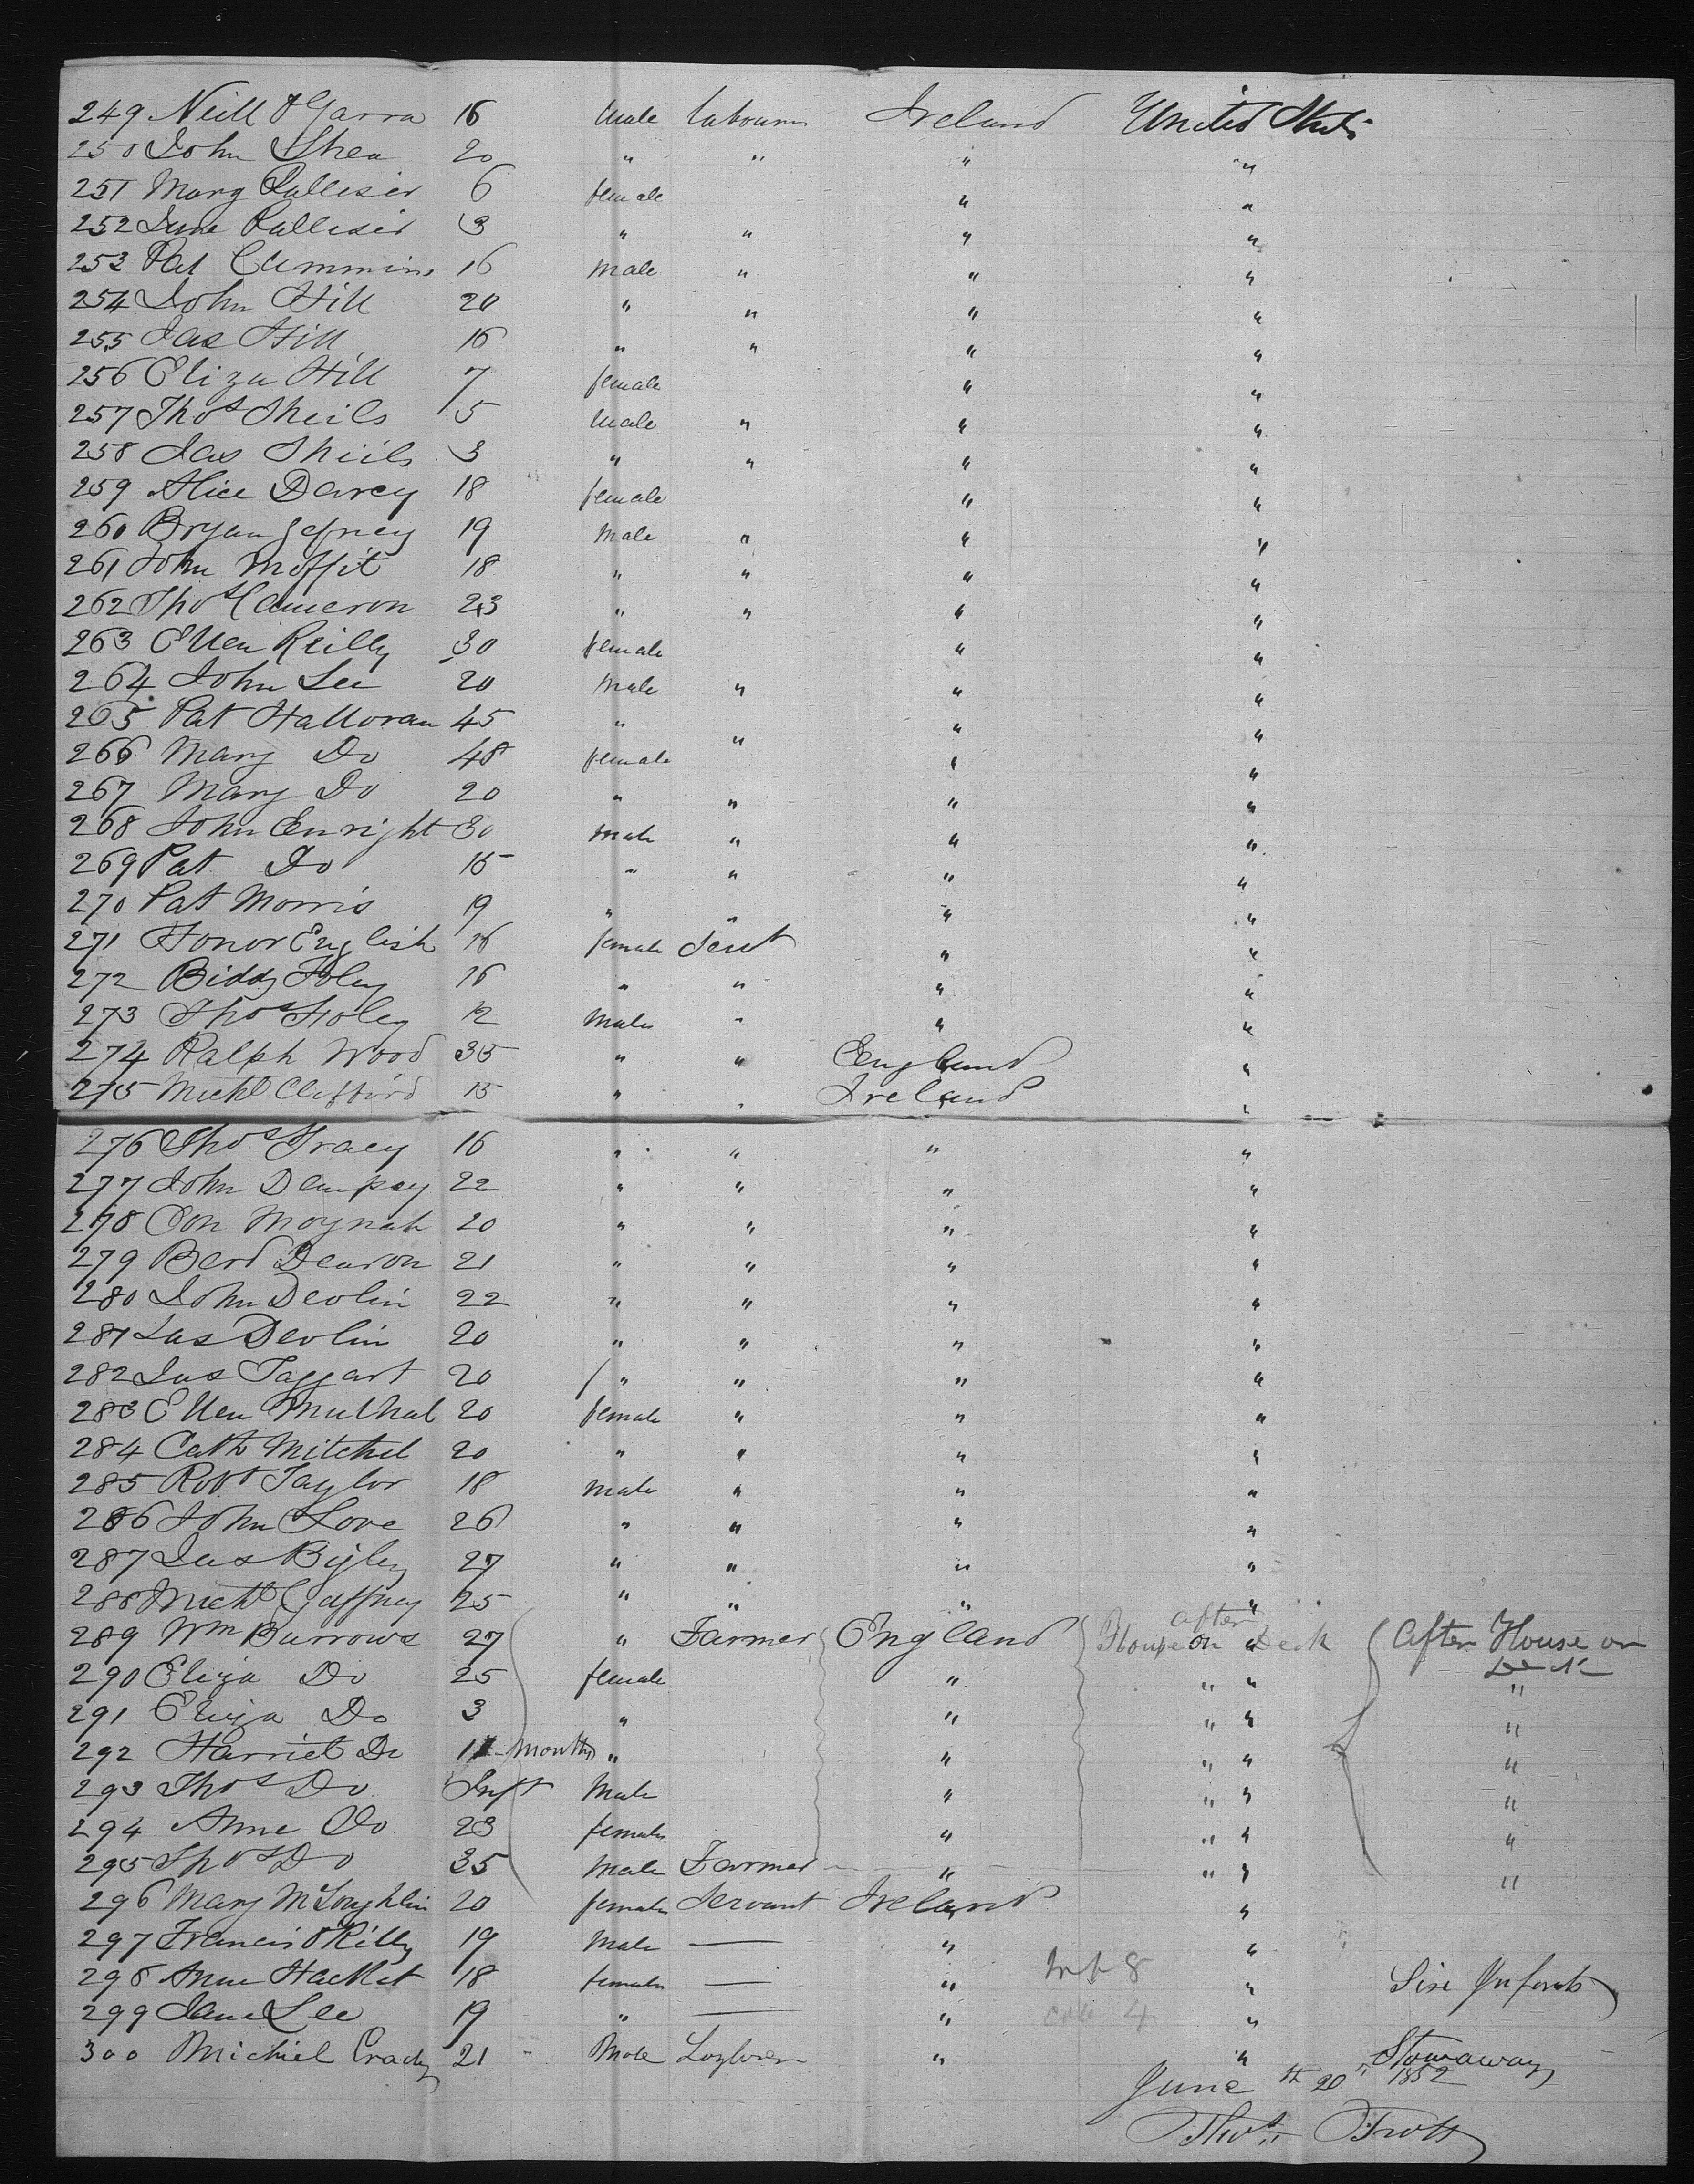 249 Neill O'Garra 16 Male Labourer Ireland United States
250 John Shea 20 " " " "
251 Mary Palliser 6 female " "
252 Jane Palliser 3 " " " "
253 Pat Cummins 16 Male " " "
254 John Hill 20 " " " "
255 Jas Hill 16 " " " "
256 Eliza Hill 7 female " "
257 Thos Sheils 5 Male " " "
258 Jas Shiils 3 " " " "
259 Alice Darcy 18 female " "
260 Bryan Gefney 19 Male " " "
261 John Moffit 18 " " " "
262 Thos Cameron 23 " " " "
263 Ellen Reilly 30 female " "
264 John Lee 20 Male " " "
265 Pat Halloran 45 " " " "
266 Mary Do 48 female " "
267 Mary Do 20 " " " "
268 John Enright 30 Male " " "
269 Pat Do 15 " " " "
270 Pat Morris 19 " " " "
271 Honor English 16 female Servt " "
272 Biddy Foley 16 " " " "
273 Thos Foley 12 Male " " "
274 Ralph Wood 35 " " England "
275 Michl Clifford 15 " " Ireland "
276 Thos Tracy 16 " " " "
277 John Dempsey 22 " " " "
278 Con Moynah 20 " " " "
279 Berd Dearon 21 " " " "
280 John Devlin 22 " " " "
281 Jas Devlin 20 " " " "
282 Jas Taggart 20 " " " "
283 Ellen Mulhal 20 female " " "
284 Cath Mitchel 20 " " " "
285 Robt Taylor 18 Male " " "
286 John Love 26 " " " "
287 Jas Bigley 27 " " " "
288 Michl Gaffney 25 " " " "
289 Wm Burrows 27 " Farmer England After House on Deck After House on Deck
290 Eliza Do 25 female " " " "
291 Eliza Do 3 " " " " "
292 Harriet Do 11 months " " " " "
293 Thos Do Inft Male " " " "
294 Anne Do 23 female " " " "
295 Thos Do 35 Male Farmer " " " "
296 Mary McLoughlin 20 female Servant Ireland "
297 Francis O'Rilly 19 Male — " "
298 Anne Hacket 18 female — " Inf 8 " Six Infants
299 Jane Lee 19 " — " 4 "
300 Michiel Grady 21 " Male " " Stowaway
June 20th 1852
Thos Trott